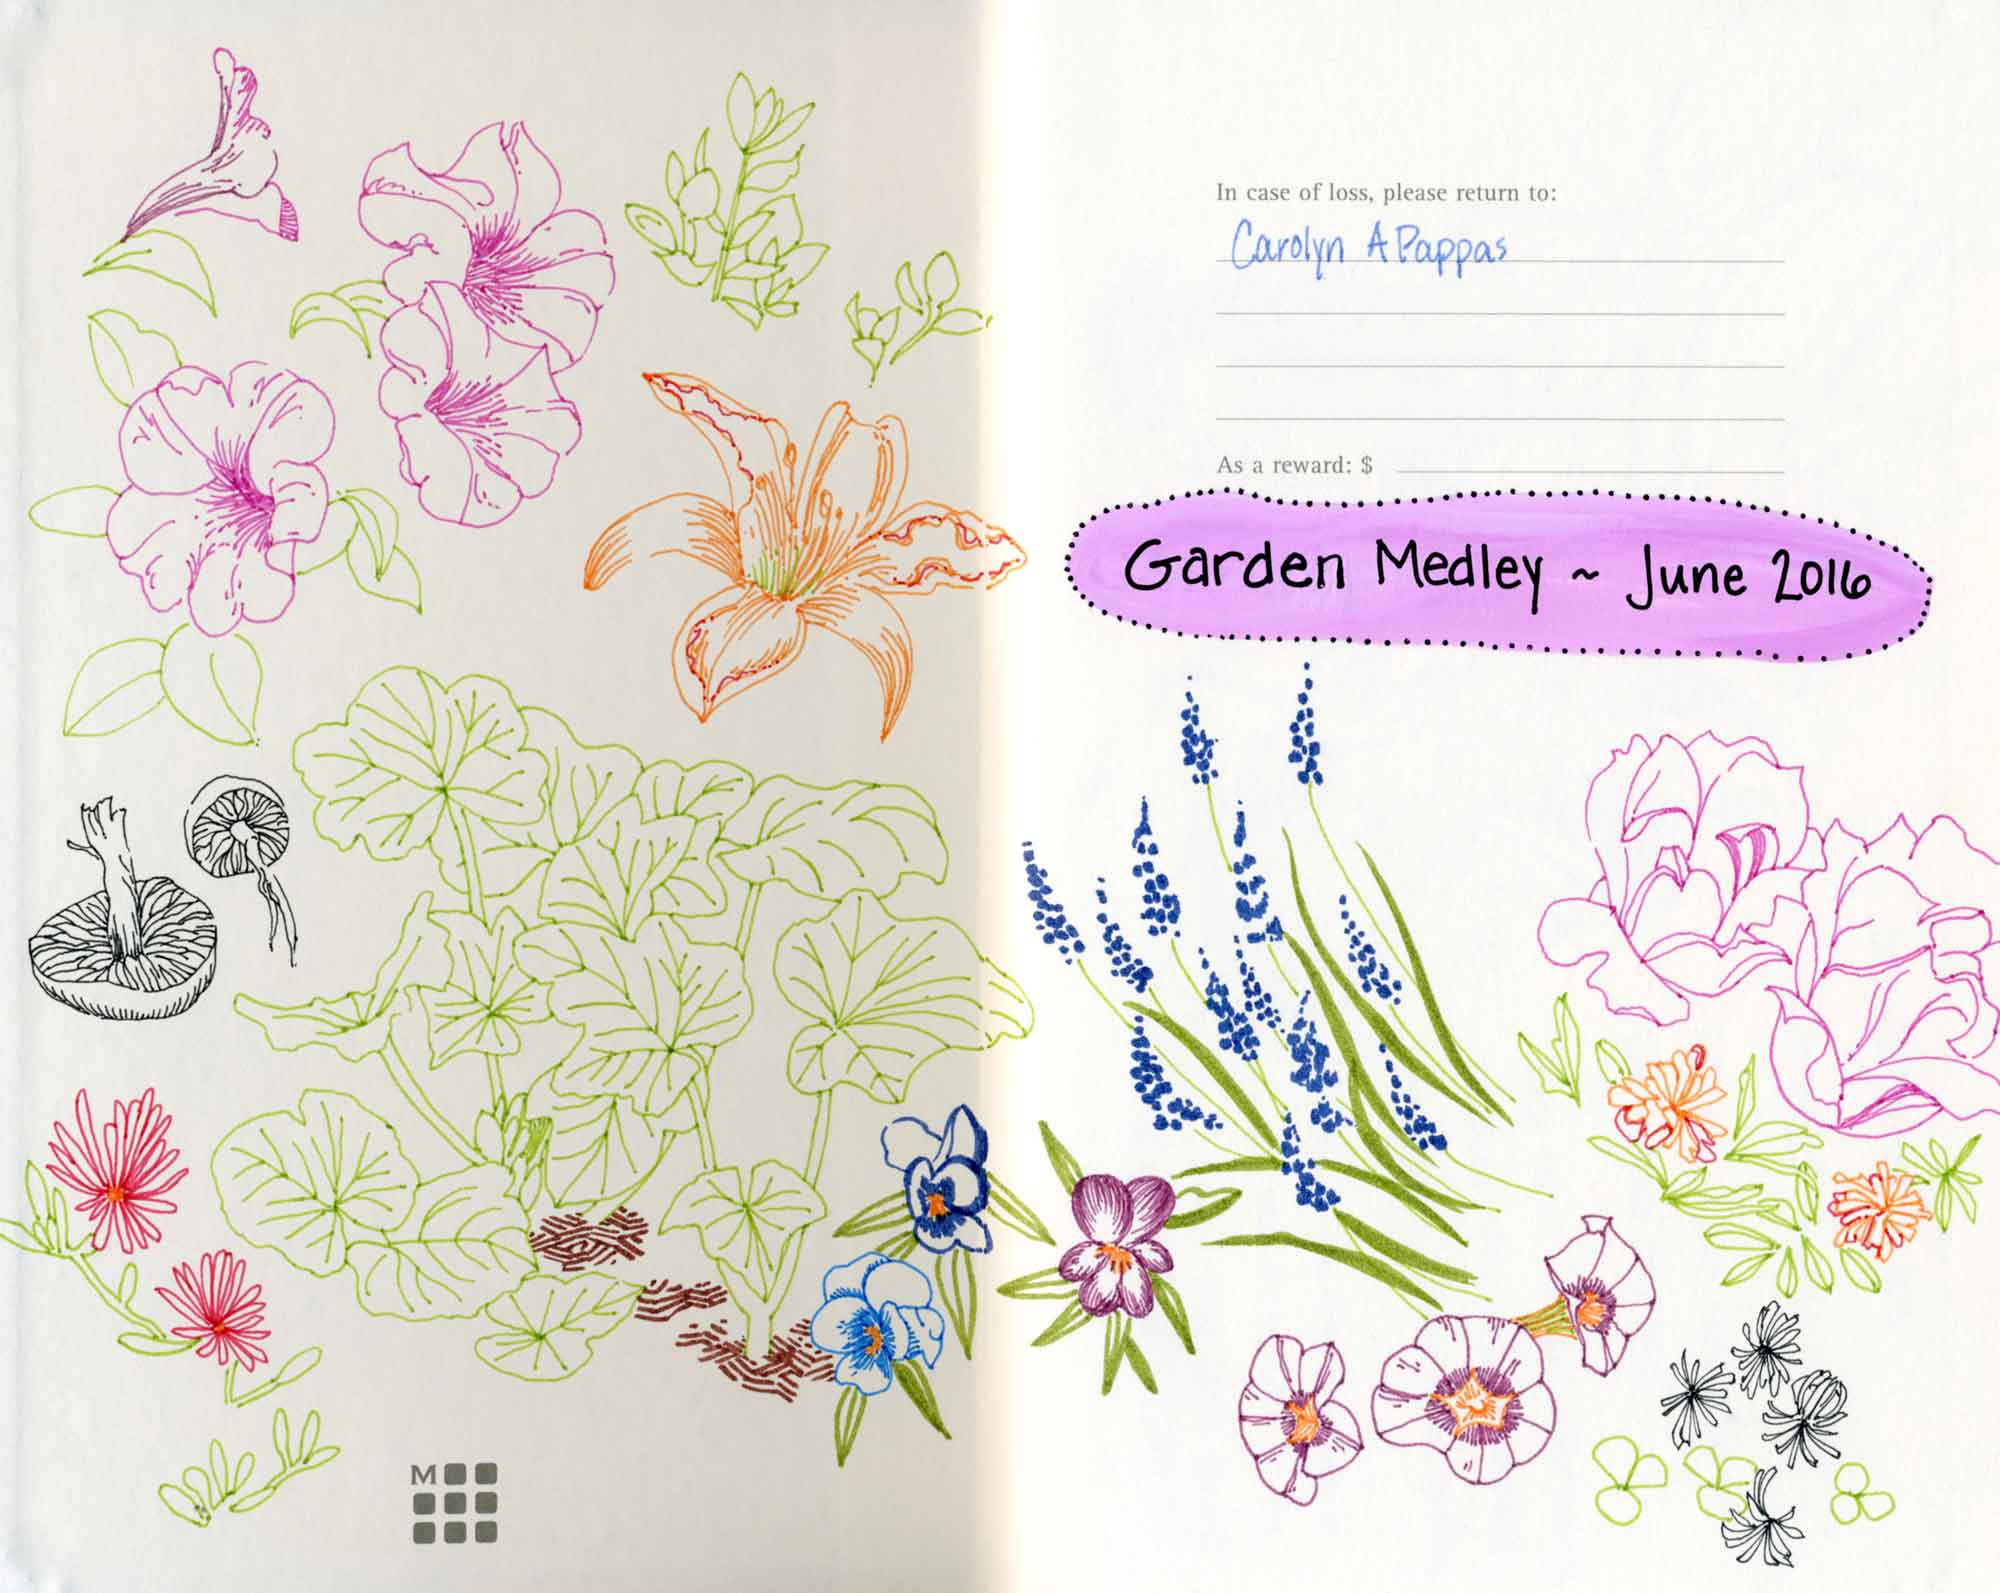 In case of loss, please return to:
Carolyn A Pappas
As a reward: $
Garden Medley ~ June 2016
M